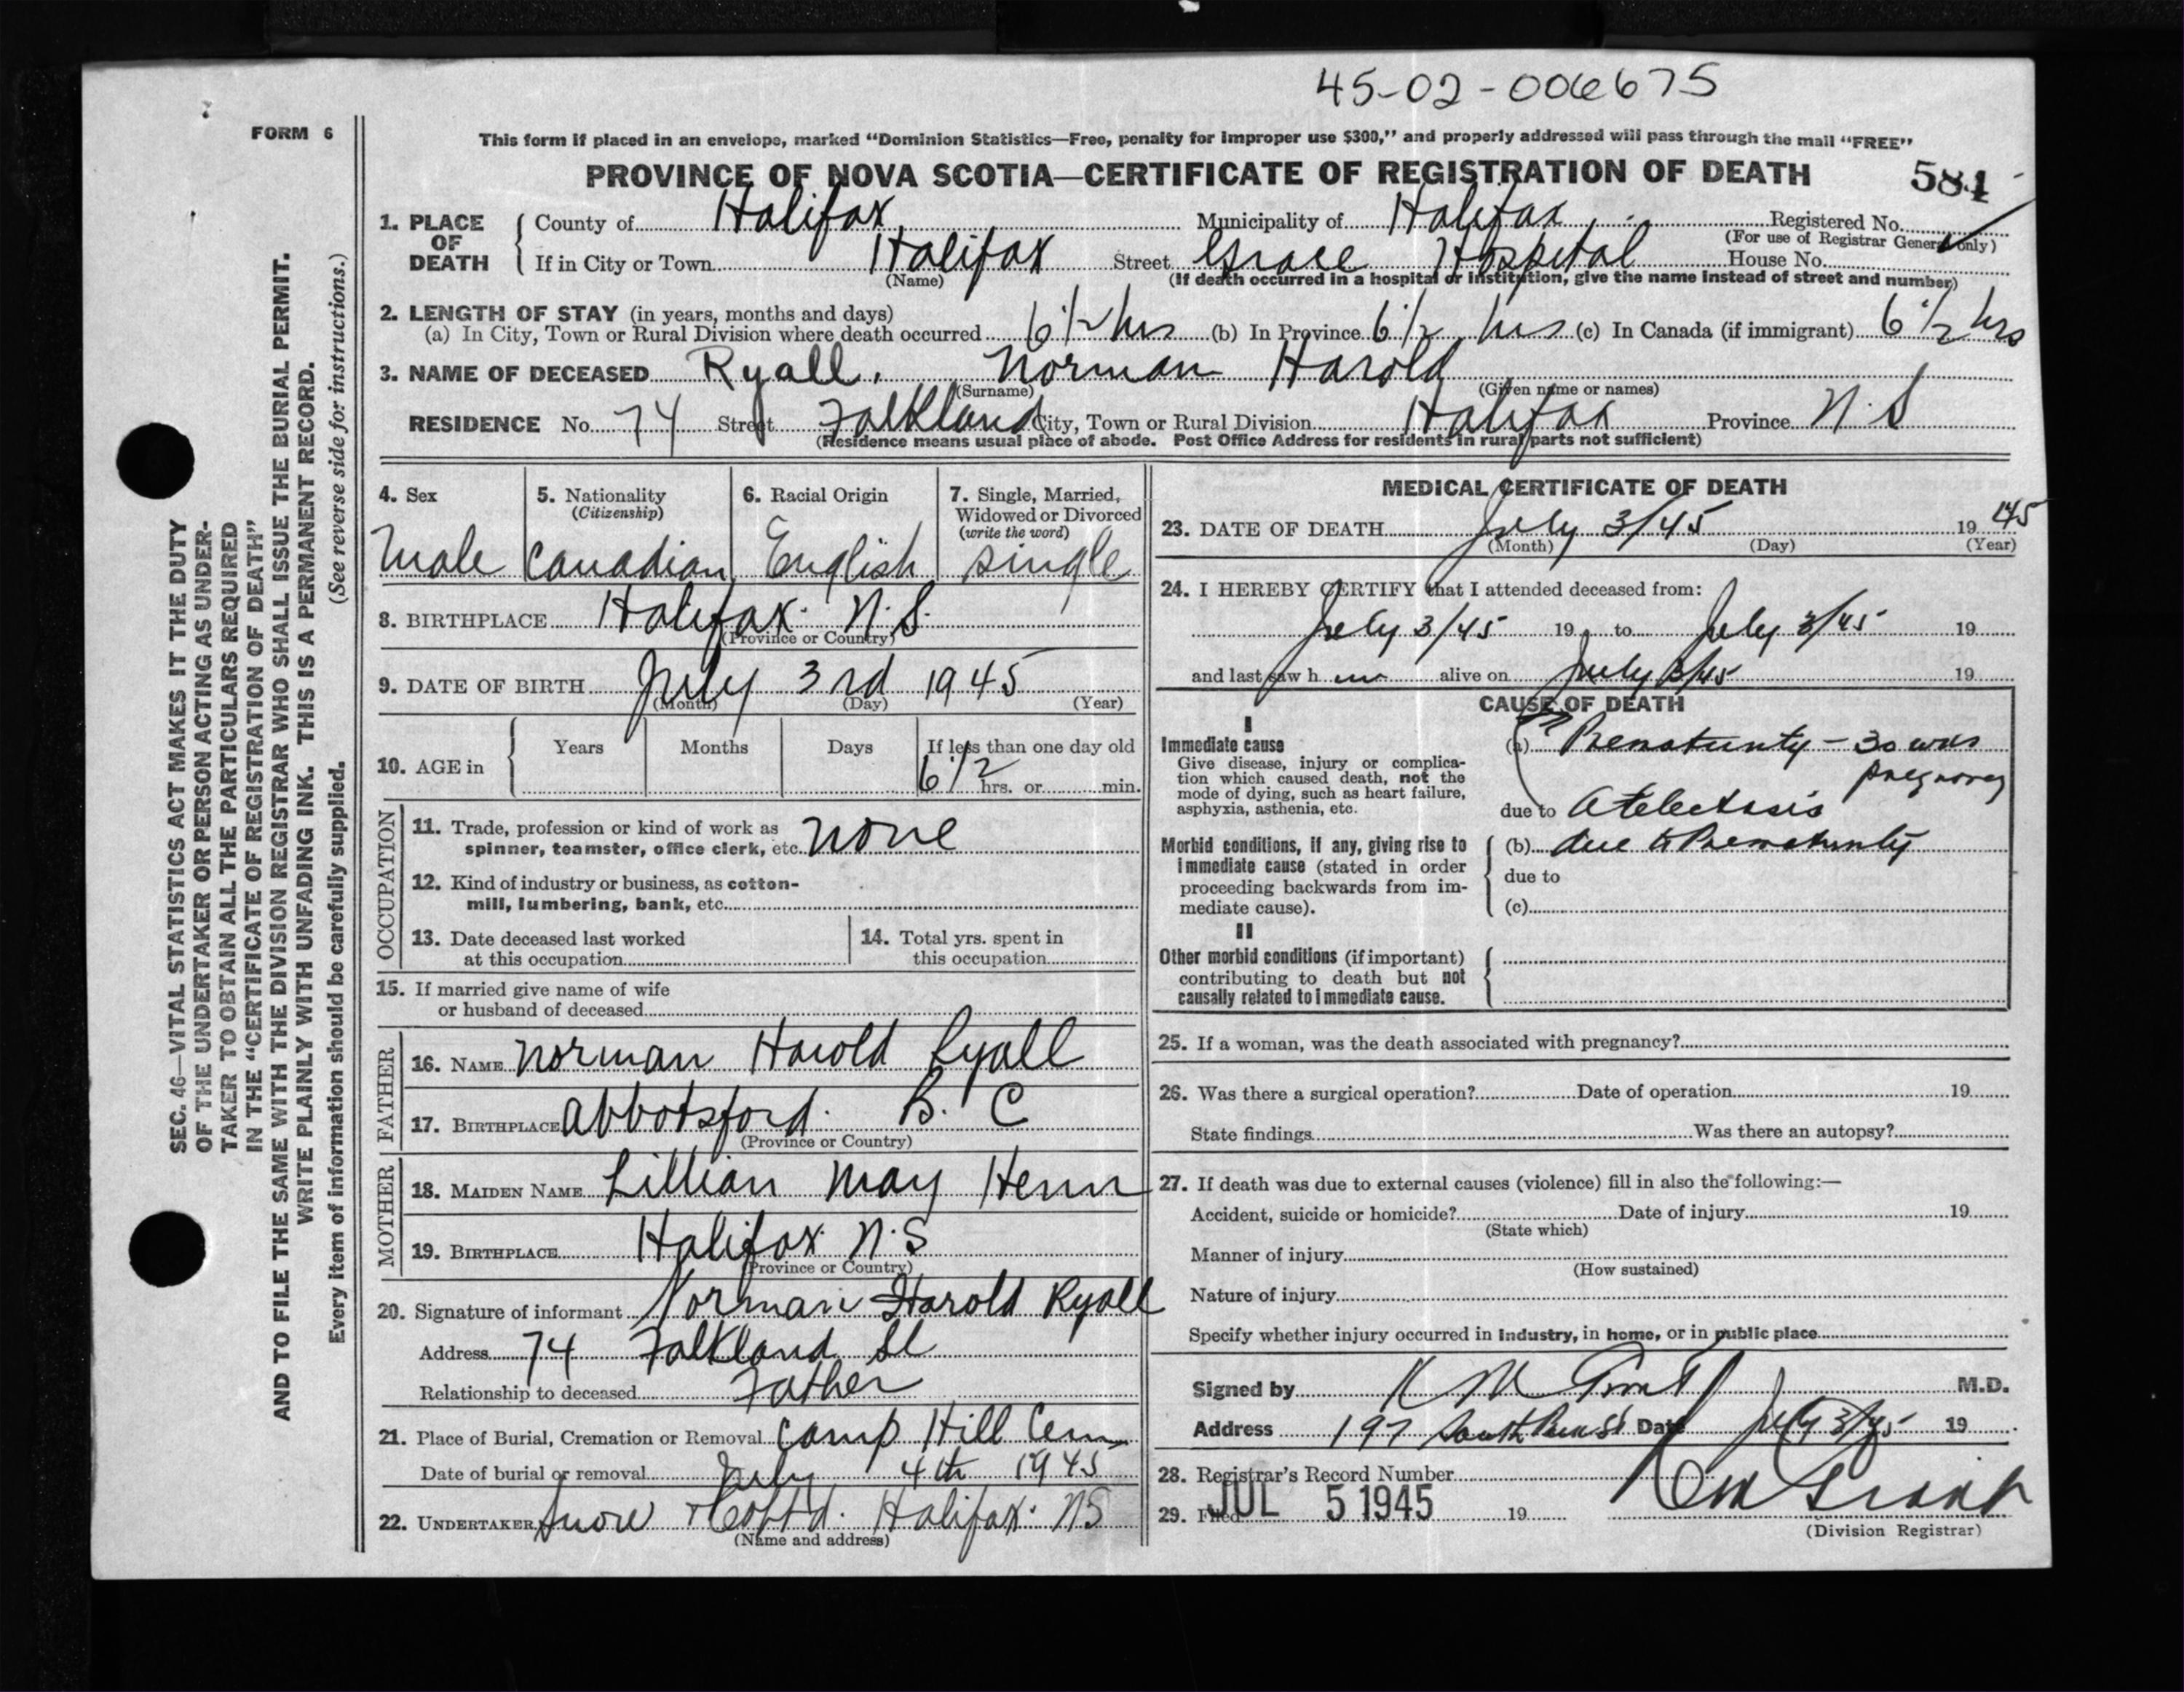 45-02-006675
FORM 6
This form if placed in an envelope, marked “Dominion Statistics—Free, penalty for improper use $300,” and properly addressed will pass through the mail “FREE”
PROVINCE OF NOVA SCOTIA—CERTIFICATE OF REGISTRATION OF DEATH 584
SEC. 46—VITAL STATISTICS ACT MAKES IT THE DUTY
OF THE UNDERTAKER OR PERSON ACTING AS UNDER-
TAKER TO OBTAIN ALL THE PARTICULARS REQUIRED
IN THE “CERTIFICATE OF REGISTRATION OF DEATH”
AND TO FILE THE SAME WITH THE DIVISION REGISTRAR WHO SHALL ISSUE THE BURIAL PERMIT.
WRITE PLAINLY WITH UNFADING INK. THIS IS A PERMANENT RECORD.
Every item of information should be carefully supplied. (See reverse side for instructions.)
1. PLACE OF DEATH
County of Halifax Municipality of Halifax Registered No.
(For use of Registrar General only)
If in City or Town Halifax Street Grace Hospital House No.
(Name) (If death occurred in a hospital or institution, give the name instead of street and number)
2. LENGTH OF STAY (in years, months and days)
(a) In City, Town or Rural Division where death occurred 6 1/2 hrs (b) In Province 6 1/2 hrs (c) In Canada (if immigrant) 6 1/2 hrs
3. NAME OF DECEASED Ryall, Norman Harold
(Surname) (Given name or names)
RESIDENCE No. 74 Street Falkland City, Town or Rural Division Halifax Province N.S
(Residence means usual place of abode. Post Office Address for residents in rural parts not sufficient)
4. Sex
Male
5. Nationality
(Citizenship)
Canadian
6. Racial Origin
English
7. Single, Married,
Widowed or Divorced
(write the word)
single
8. BIRTHPLACE Halifax. N.S.
(Province or Country)
9. DATE OF BIRTH July 3rd 1945
(Month) (Day) (Year)
10. AGE in
Years Months Days If less than one day old
6 1/2 hrs. or min.
OCCUPATION
11. Trade, profession or kind of work as
spinner, teamster, office clerk, etc. none
12. Kind of industry or business, as cotton-
mill, lumbering, bank, etc.
13. Date deceased last worked
at this occupation
14. Total yrs. spent in
this occupation
15. If married give name of wife
or husband of deceased
FATHER
16. NAME Norman Harold Ryall
17. BIRTHPLACE Abbotsford. B. C
(Province or Country)
MOTHER
18. MAIDEN NAME Lillian May Henn
19. BIRTHPLACE Halifax N.S
(Province or Country)
20. Signature of informant Norman Harold Ryall
Address 74 Falkland St
Relationship to deceased Father
21. Place of Burial, Cremation or Removal Camp Hill Cem
Date of burial or removal July 4th 1945
22. UNDERTAKER Snow & Co Ltd. Halifax. NS
(Name and address)
MEDICAL CERTIFICATE OF DEATH
23. DATE OF DEATH July 3/45 19 45
(Month) (Day) (Year)
24. I HEREBY CERTIFY that I attended deceased from:
July 3/45 19 to July 3/45 19
and last saw h im alive on July 3/45 19
CAUSE OF DEATH
I
Immediate cause
Give disease, injury or complica-
tion which caused death, not the
mode of dying, such as heart failure,
asphyxia, asthenia, etc.
(a) Prematurity - 30 wks
pregnancy
due to Atelectasis
Morbid conditions, if any, giving rise to
immediate cause (stated in order
proceeding backwards from im-
mediate cause).
(b) due to Prematurity
due to
(c)
II
Other morbid conditions (if important)
contributing to death but not
causally related to immediate cause.
25. If a woman, was the death associated with pregnancy?
26. Was there a surgical operation? Date of operation 19
State findings Was there an autopsy?
27. If death was due to external causes (violence) fill in also the following:—
Accident, suicide or homicide? Date of injury 19
(State which)
Manner of injury
(How sustained)
Nature of injury
Specify whether injury occurred in industry, in home, or in public place
Signed by K M Grant M.D.
Address 197 South Park St Date July 3/45 19
28. Registrar's Record Number
29. Filed JUL 5 1945 19
(Division Registrar)